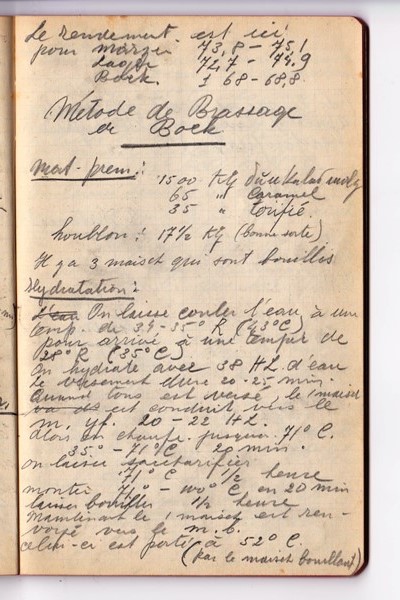 Le rendement est ici
pour Märzen 73,8 - 75,1
Lager 72,7 - 74,9
Bock. 68 - 68,8
Métode de Brassage
de Bock
Mat-prem:
1500 Kg
65 " Caramel
35 " torifié.
houblon: 17½ Kg (bonne sorte)
Il y a 3 maisch qui sont bouillis
Hydratation:
On laisse couler l'eau à un
temp. de 34-35° R (43°C)
pour arrivé à une temper de
28° R (35°C)
On hydrate avec 38 HL. d'eau
Le versement dure 20-25 min.
Quand tous est versé, le 1 maisch
est conduit vers le
m. 20 - 22 HL.
Alors on chauffe jusque 71° C.
35° - 71°C 20 min.
on laisse sacharifier
71° C ½ heure
monter 71° - 100° C en 20 min
laisser bouillir ½ heure
Maintenant le 1 maisch est ren-
versé vers le m. b.
celui-ci est porté à 52° C.
(par le maisch bouillant)